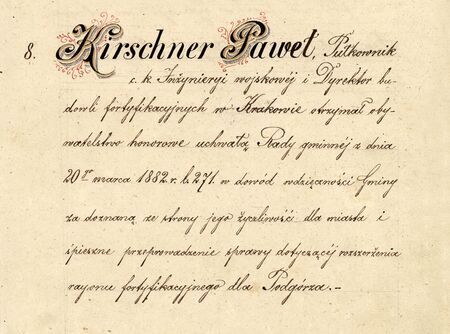 8. Kirschner Paweł, Pułkownik
c. k. Inżynieryi wojskowéj i Dyrektor bu-
dowli fortyfikacyjnych w Krakowie otrzymał oby-
watelstwo honorowe uchwałą Rady gminnéj z dnia
20go marca 1882 r. l. 271. w dowód wdzięczności Gminy
za doznaną ze strony jego życzliwość dla miasta i
śpieszne przeprowadzenie sprawy dotyczącéj rozszerzenia
rayonu fortyfikacyjnego dla Podgórza. –